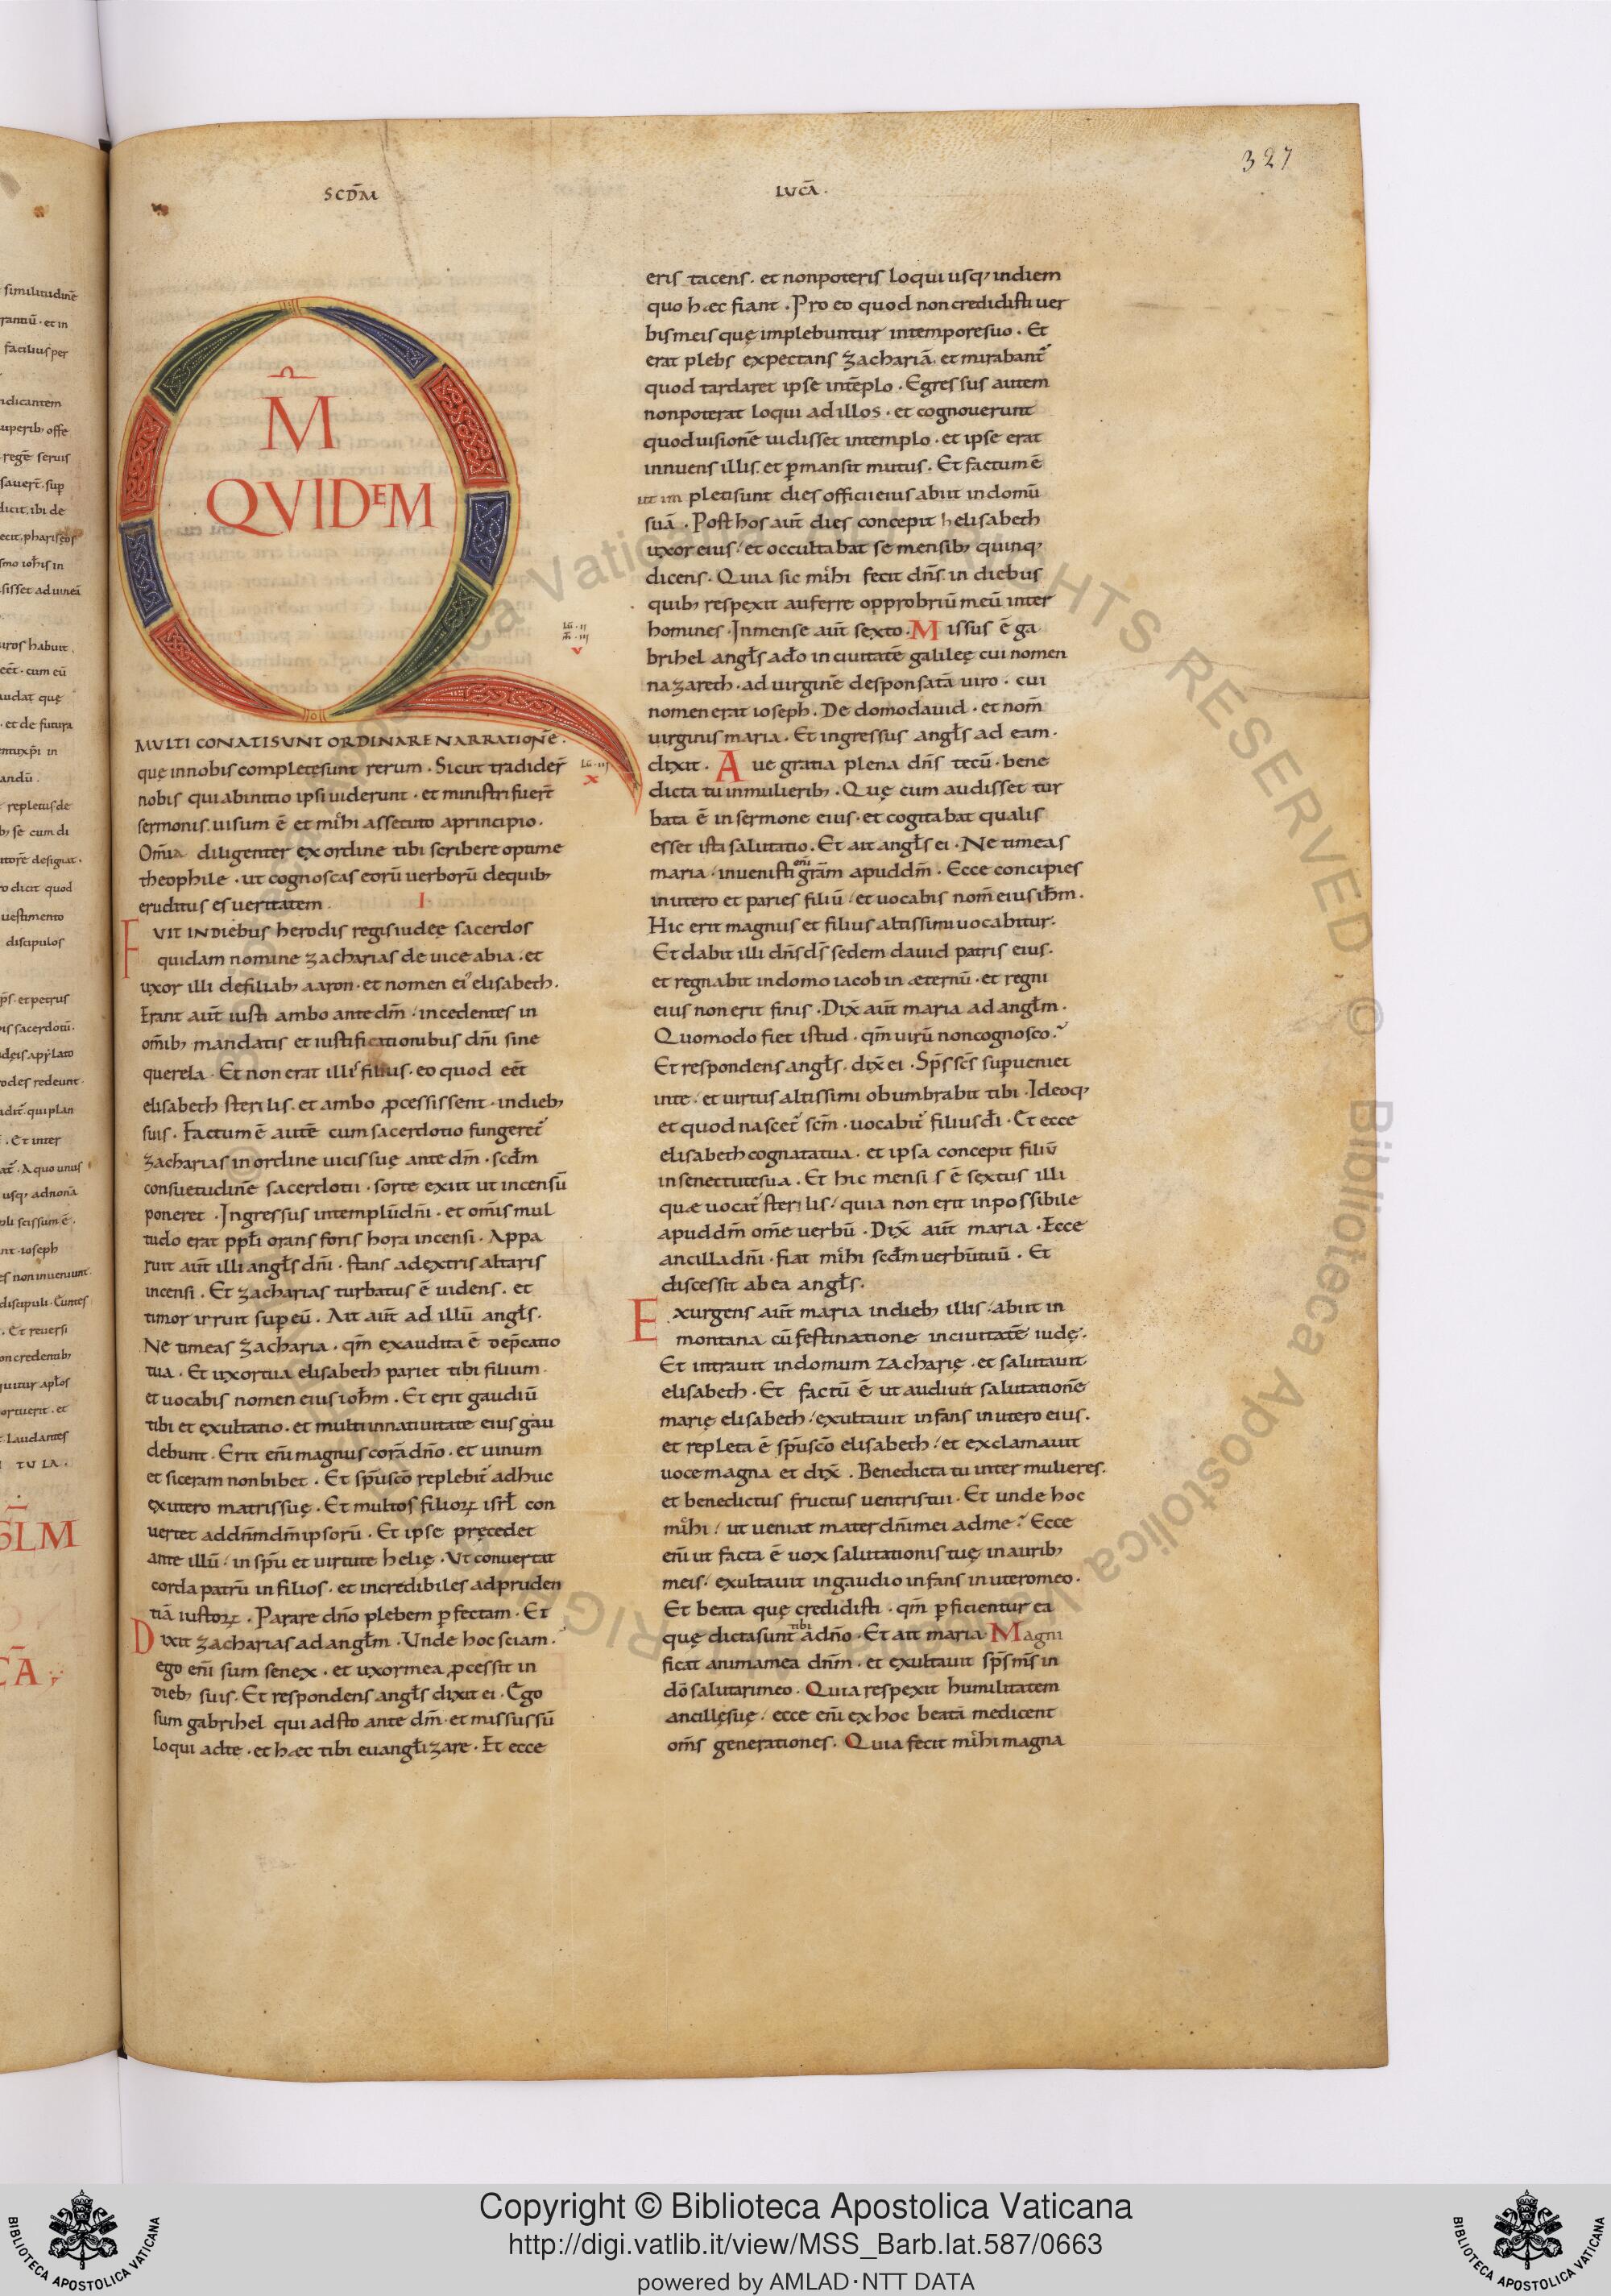 327
SCDM̄
LUCĀ.
Q
M̄
QVIDEM
MULTI CONATI SUNT ORDINARE NARRATIONĒ.
quę in nobis completę sunt rerum. Sicut tradider̄
nobis qui ab initio ipsi viderunt. et ministri fuer̄t
sermonis. uisum ē et mihi assecuto a principio.
Om̄ia diligenter ex ordine tibi scribere optime
theophile. ut cognoscas eorū uerborū de quib;
eruditus es ueritatem. I.
FVIT IN DIEBUS herodis regis iudeę sacerdos
quidam nomine zacharias de uice abia. et
uxor illi de filiab; aaron. et nomen ei' elisabeth.
Erant aut̄ iusti ambo ante dm̄. incedentes in
om̄ib; mandatis et iustificationibus dn̄i sine
querela. Et non erat illi' filius. eo quod eēt
elisabeth sterilis. et ambo ꝓcessissent. in dieb;
suis. Factum ē autē cum sacerdotio fungeret̄
zacharias in ordine uicis suę ante dm̄. scd̄m
consuetudinē sacerdotii. sorte exiit ut incensū
poneret. Ingressus in templū dn̄i. et om̄is mul
tudo erat ppl̄i orans foris hora incensi. Appa
ruit aut̄ illi angl̄s dn̄i. stans a dextris altaris
incensi. Et zacharias turbatus ē uidens. et
timor irruit sup eū. Ait aut̄ ad illū angl̄s.
Ne timeas zacharia. qm̄ exaudita ē dep̄catio
tua. Et uxor tua elisabeth pariet tibi filium.
et uocabis nomen eius ioh̄m. Et erit gaudiū
tibi et exultatio. et multi in natiuitate eius gau
debunt. Erit eni̅ magnus corā dn̄o. et uinum
et siceram non bibet. Et sp̄u sc̄o replebit̄ adhuc
ex utero matris suę. Et multos filioꝝ isrl̄ con
uertet ad dn̄m dm̄ ipsorū. Et ipse pręcedet
ante illū. in sp̄u et uirtute helię. Ut conuertat
corda patrū in filios. et incredibiles ad pruden
tiā iustoꝝ. Parare dn̄o plebem ꝑfectam. Et
Dixit zacharias ad angl̄m. Unde hoc sciam.
ego eni̅ sum senex. et uxor mea ꝓcessit in
dieb; suis. Et respondens angl̄s dixit ei. Ego
sum gabrihel qui adsto ante dm̄. et missus sū
loqui ad te. et hæc tibi euangl̄izare. Et ecce
eris tacens. et non poteris loqui usq; in diem
quo hæc fiant. Pro eo quod non credidisti uer
bis meis quę implebuntur in tempore suo. Et
erat plebs expectans zachariā. et mirabant̄
quod tardaret ipse in tēplo. Egressus autem
non poterat loqui ad illos. et cognouerunt
quod uisionē uidisset in templo. et ipse erat
innuens illis. et ꝑmansit mutus. Et factum ē
ut im pleti sunt dies officii eius abiit in domū
suā. Post hos aut̄ dies concepit helisabeth
uxor eius. et occultabat se mensib; quinq;
dicens. Quia sic mihi fecit dn̄s. in diebus
quib; respexit auferre opprobriū meū inter
homines. In mense aut̄ sexto. Missus ē ga
brihel angl̄s a dō in ciuitatē galileę cui nomen
nazareth. ad uirginē desponsatā uiro. cui
nomen erat ioseph. De domo dauid. et nom̄
uirginis maria. Et ingressus angl̄s ad eam.
dixit. Aue gratia plena dn̄s tecū. bene
dicta tu in mulierib;. Quę cum audisset tur
bata ē in sermone eius. et cogitabat qualis
esset ista salutatio. Et ait angl̄s ei. Ne timeas
maria. inuenisti eni̅ gr̄am apud dm̄. Ecce concipies
in utero et paries filiū. et uocabis nom̄ eius ih̄m.
Hic erit magnus et filius altissimi uocabitur.
Et dabit illi dn̄s ds̄ sedem dauid patris eius.
et regnabit in domo iacob in æternū. et regni
eius non erit finis. Dix̄ aut̄ maria ad angl̄m.
Quomodo fiet istud. qm̄ uirū non cognosco?
Et respondens angl̄s. dix̄ ei. Sp̄s sc̄s supueniet
in te. et uirtus altissimi obumbrabit tibi. Ideoq;
et quod nascet̄ sc̄m. uocabit̄ filius dī. Et ecce
elisabeth cognata tua. et ipsa concepit filiū
in senectute sua. Et hic mensis ē sextus illi
quæ uocat̄ sterilis. quia non erit inpossibile
apud dm̄ om̄e uerbū. Dix̄ aut̄ maria. Ecce
ancilla dn̄i. fiat mihi scd̄m uerbū tuū. Et
discessit ab ea angl̄s.
Exurgens aut̄ maria in dieb; illis. abiit in
montana cū festinatione in ciuitatē iudę.
Et intrauit in domum zacharię. et salutauit
elisabeth. Et factū ē ut audiuit salutationē
marię elisabeth. exultauit infans in utero eius.
et repleta ē sp̄u sc̄o elisabeth. et exclamauit
uoce magna et dix̄. Benedicta tu inter mulieres.
et benedictus fructus uentris tui. Et unde hoc
mihi. ut ueniat mater dn̄i mei ad me? Ecce
eni̅ ut facta ē uox salutationis tuę in aurib;
meis. exultauit in gaudio infans in utero meo.
Et beata quę credidisti. qm̄ ꝑficientur ea
quę dicta sunt tibi a dn̄o. Et ait maria. Magni
ficat anima mea dn̄m. et exultauit sp̄s m̄s in
dō salutari meo. Quia respexit humilitatem
ancillę suę. ecce eni̅ ex hoc beatā me dicent
om̄s generationes. Quia fecit mihi magna
Copyright © Biblioteca Apostolica Vaticana
http://digi.vatlib.it/view/MSS_Barb.lat.587/0663
powered by AMLAD·NTT DATA
BIBLIOTECA APOSTOLICA VATICANA
BIBLIOTECA APOSTOLICA VATICANA